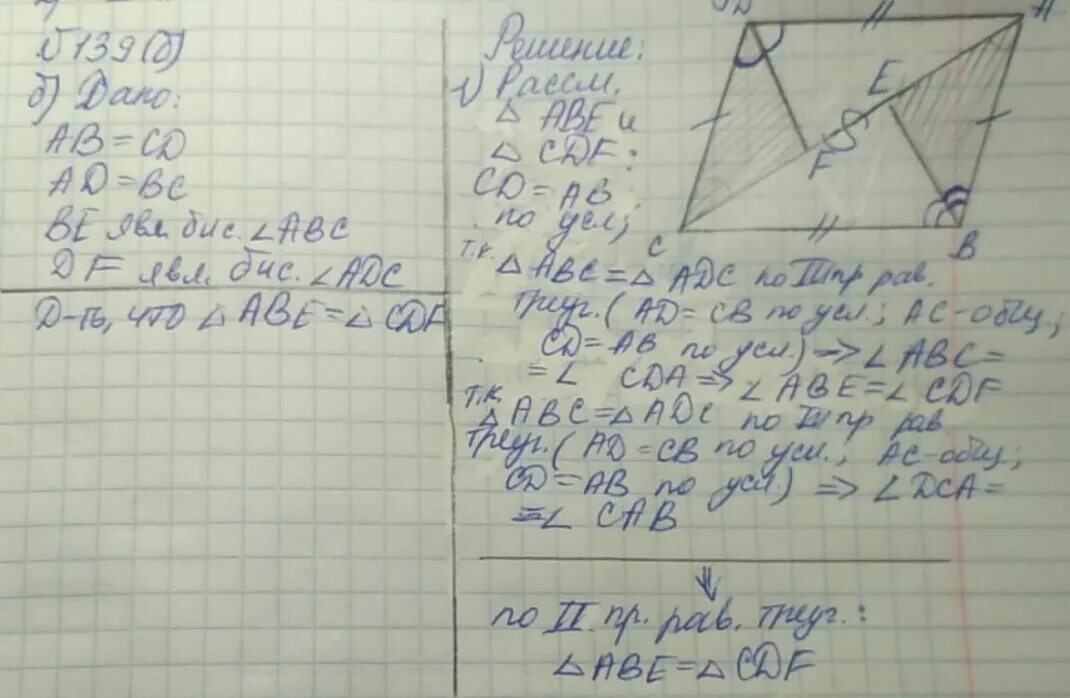 №139(б)
б) Дано:
AB = CD
AD = BC
BE явл. бис. ∠ABC
DF явл. бис. ∠ADC
Д-ть, что △ABE = △CDF
Решение:
1) Рассм.
△ ABE и
△ CDF:
CD = AB
по усл;
т.к. △ABC = △ADC по III пр рав.
треуг. (AD = CB по усл.; AC-общ.;
CD = AB по усл.) => ∠ABC =
= ∠ CDA => ∠ABE = ∠CDF
т.к. △ABC = △ADC по III пр рав
треуг. (AD = CB по усл.; AC-общ.;
CD = AB по усл.) => ∠DCA =
= ∠ CAB
⇓
по II. пр. рав. треуг.:
△ABE = △CDF
D
A
E
F
C
B